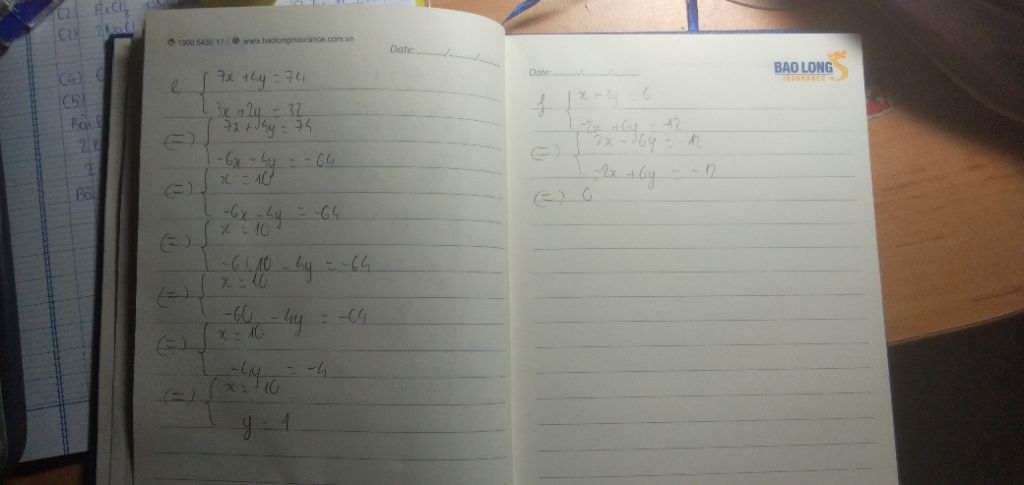 (2)
(3)
(4)
(5)
1900 5455 17 | www.baolonginsurance.com.vn
Date: ......../......../........
e { 7x + 4y = 74
3x + 2y = 32
(=) { 7x + 4y = 74
-6x - 4y = -64
(=) { x = 10
-6x - 4y = -64
(=) { x = 10
-6(10) - 4y = -64
(=) { x = 10
-60 - 4y = -64
(=) { x = 10
-4y = -4
(=) { x = 10
y = 1
Date: ......../......../........
BAO LONG
INSURANCE
f. { = 6
-2x + 6y = -12
(=) {
-2x + 6y = -12
(=) 0